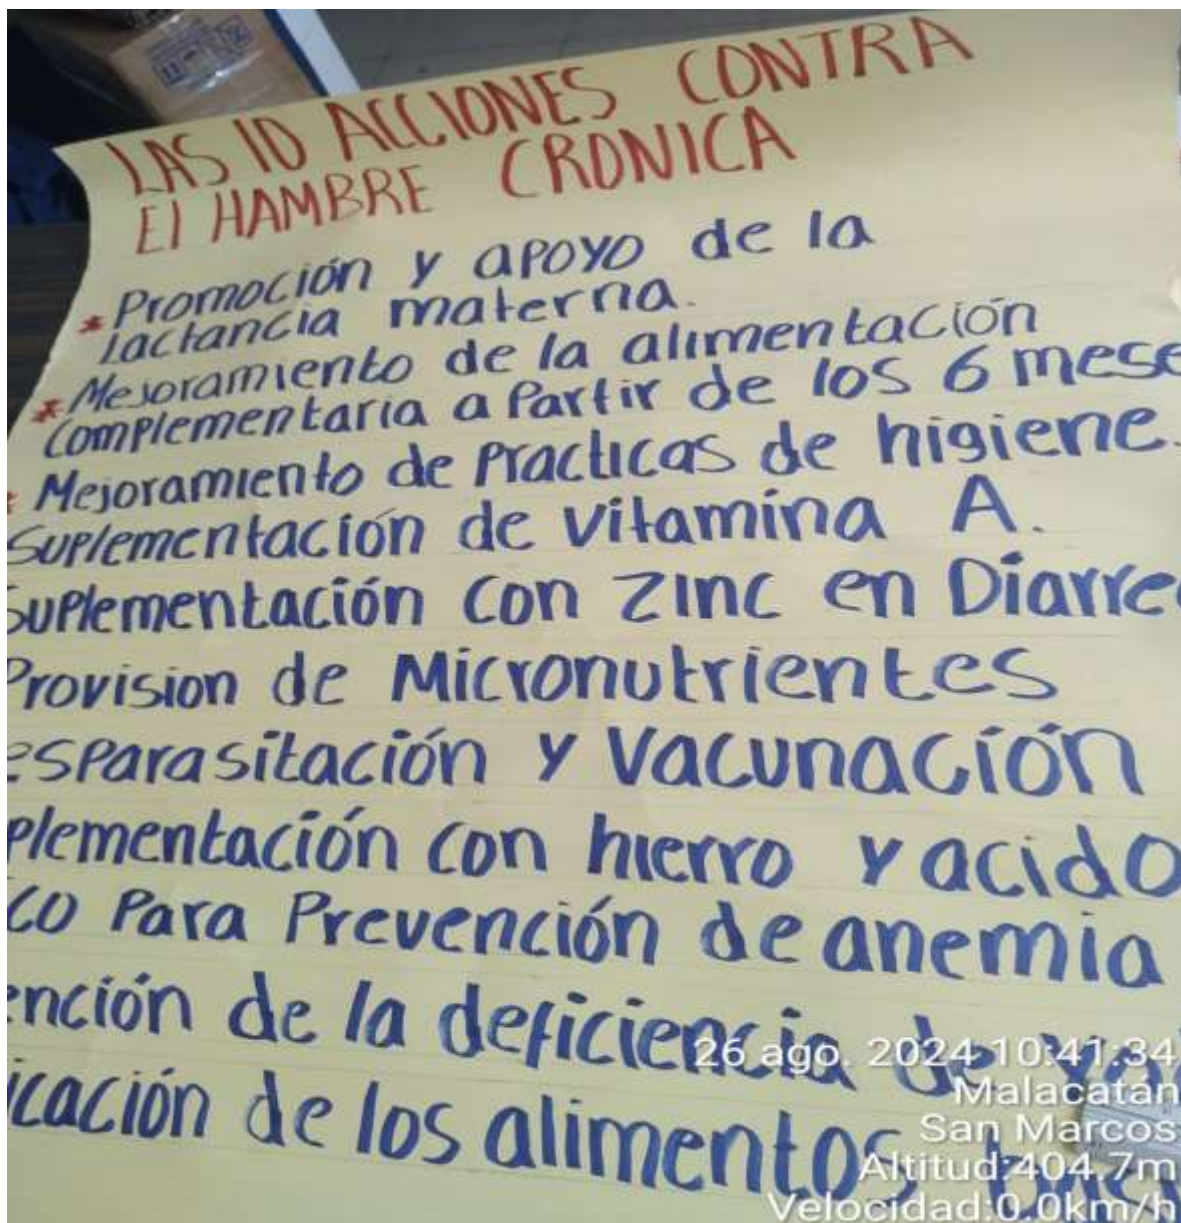 LAS 10 ACCIONES CONTRA
El HAMBRE CRONICA
* Promoción y apoyo de la
Lactancia materna.
* Mejoramiento de la alimentación
Complementaria a Partir de los 6 mese
* Mejoramiento de Practicas de higiene.
Suplementación de vitamina A.
Suplementación con Zinc en Diarre
Provision de Micronutrientes
esparasitación y Vacunación
plementación con hierro y acido
ico Para Prevención de anemia
ención de la deficiencia de
icación de los alimentos
26 ago. 2024 10:41:34
Malacatán
San Marcos
Altitud:404.7m
Velocidad:0.0km/h